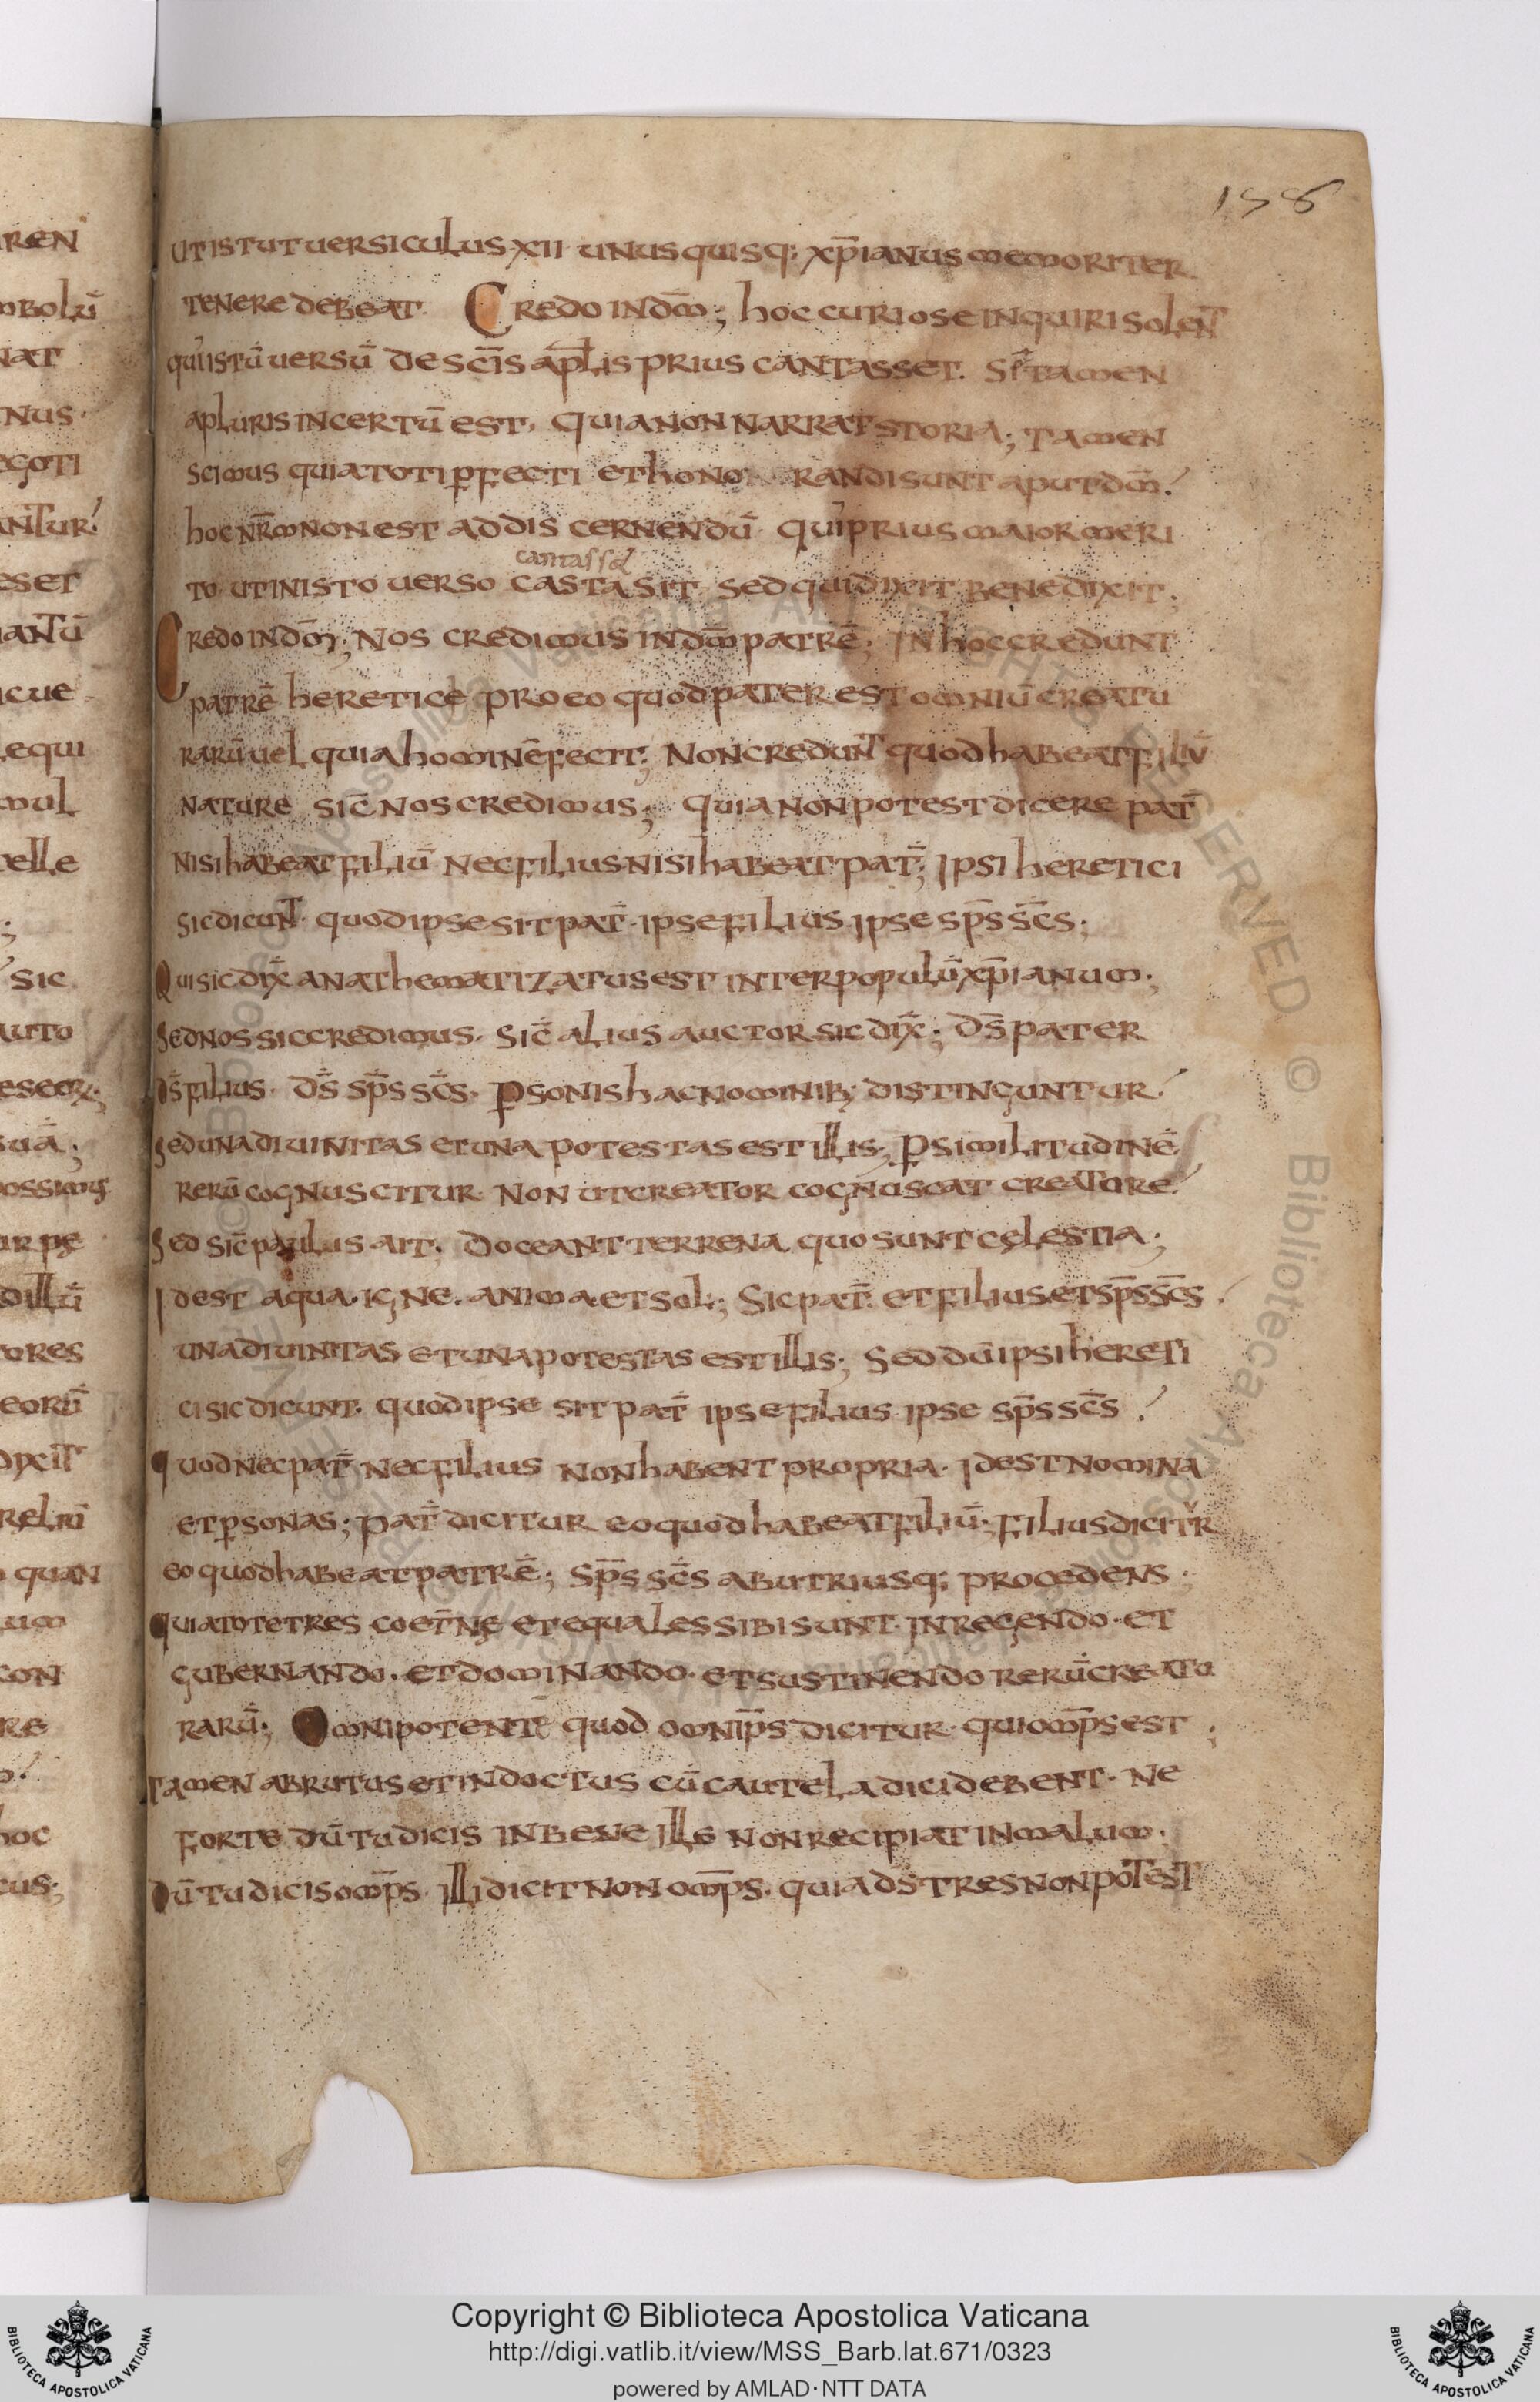 158
utistut uersiculus xii unusquisq; xp̄ianus memoriter
tenere debeat. Credo indm̄; hoc curiose inquiri solent
qui istū uersū de sc̄is aplīs prius cantasset. Si tamen
apluris incertū est, quia non narrat storia; tamen
scimus quia toti ꝑfecti et honorandi sunt aput dm̄.
hoc nr̄m non est ad dis cernendū qui prius maior meri
cantasset
to ut in isto uerso castasit sed quid dixit benedixit;
Credo indm̄; Nos credimus in dm̄ patrē; In hoc credunt
patrē heretice pro eo quod pater est omniū creatu
rarū uel quia hominē fecit; Non credunt quod habeat filiū
nature sic̄ nos credimus; quia non potest dicere pat̄
nisi habeat filiū nec filius nisi habeat pat̄; Ipsi heretici
sic dicunt quod ipse sit pat̄ ipse filius ipse sp̄s sc̄s;
Qui sic dix̄ anathematizatus est inter populū xp̄ianum;
Sed nos sic credimus. Sic̄ alius auctor sic dix̄; Ds̄ pater
ds̄ filius. ds̄ sp̄s sc̄s. ꝑsonis hac nominib; distinguntur.
Sed una diuinitas et una potestas est illis; ꝑ similitudinē
rerū cognuscitur non ut creator cognuscat creature.
Sed sic̄ paulus ait; doceant terrena quo sunt cęlestia;
Id est aqua. igne. anima. et sol; Sic pat̄. et filius. et sp̄s sc̄s
una diuinitas et una potestas est illis; Sed dū ipsi hereti
ci sic dicunt. quod ipse sit pat̄ ipse filius ipse sp̄s sc̄s.
quod nec pat̄ nec filius non habent propria. Id est nomina
et ꝑsonas; pat̄ dicitur eo quod habeat filiū; filius dicitur
eo quod habeat patrē; Sp̄s sc̄s ab utriusq; procedens.
quia totet res coet̄nę et equales sibi sunt. In regendo. et
gubernando. et dominando. et sustinendo rerū creatu
rarū; Omnipotentē quod omnip̄s dicitur qui omp̄s est;
Tamen abrutus et indoctus cū cautela dici debent. Ne
forte dū tu dicis in bene ille non recipiat in malum.
Dū tu dicis omp̄s. illi dicit non omp̄s. quia ds̄ tres non potest
Copyright © Biblioteca Apostolica Vaticana
http://digi.vatlib.it/view/MSS_Barb.lat.671/0323
powered by AMLAD·NTT DATA
BIBLIOTECA APOSTOLICA VATICANA
BIBLIOTECA APOSTOLICA VATICANA